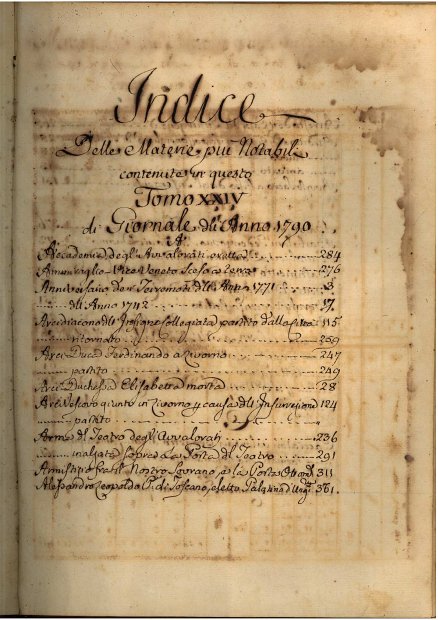 Indice
Delle Materie più Notabili
contenute in questo
Tomo XXIV
di Giornale dell'Anno 1790
A
Accademia degli Avvalorati 284
Ammiraglio Vice Veneto Sceso a terra 276
Anniversario de Terremoti dell'Anno 1771 3
dell'Anno 1742 17.
Arcidiacono dell'Insigne Collegiata partito dalla 115
ritornato 259
Arci Duca Ferdinando a Livorno 247
partito 249
Arci Duchessa Elisabetta morta 28
Arcivescovo giunto in Livorno p causa dell'Insurrezione 124
partito "
Arme del Teatro degli Avvalorati 236
inalzata sopra la Porta del Teatro 291
Armistizio tra il Nostro Sovrano e la Porta 311
Alessandro Leopoldo P. di Toscana eletto Palatino d'Ung. 361.